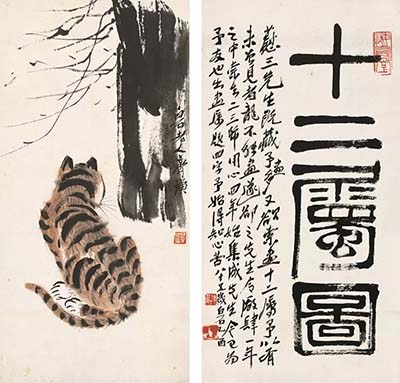 十二屬圖
三先生既藏予畫多又欲索畫十二屬予以有
未曾見者龍不能畫遂卻之先生令廠肆一年
之中索去二三幅用心四年始集成先生今已為
予友也出畫屬題四字予始得知心苦
白石老人齊璜